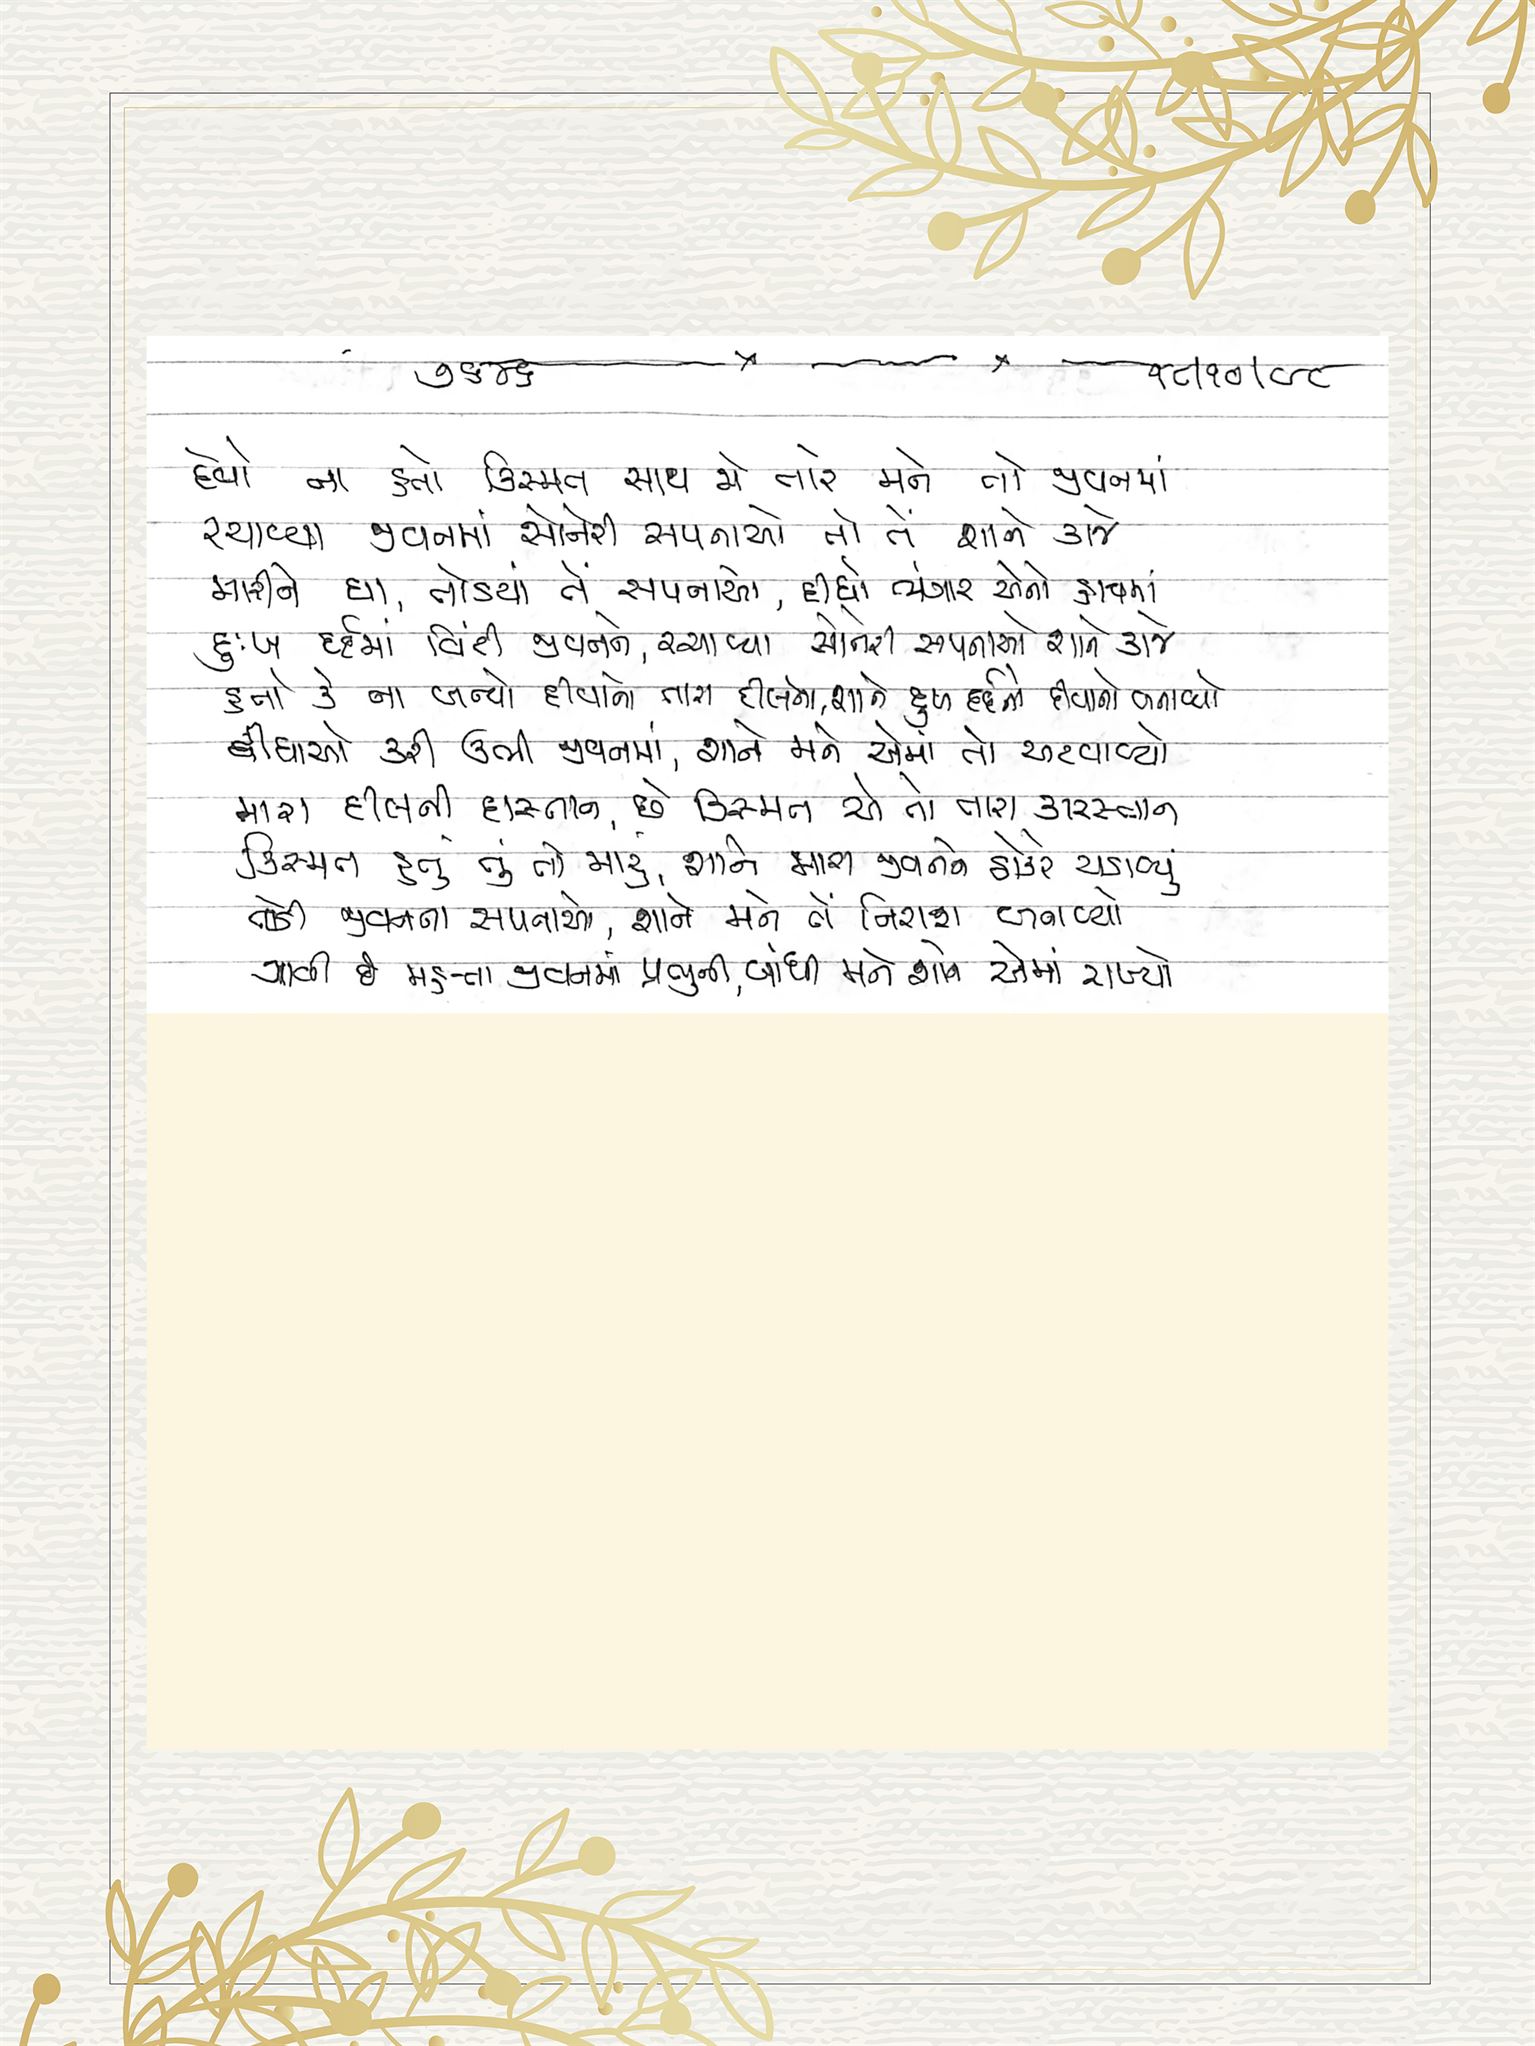 ૭૬૪૬ ૧૮/૧૦/૯૮
દેવો ના હતો કિસ્મત સાથ મે તારે મને તો જીવનમાં
રચાવ્યા જીવનમાં સોનેરી સપનાઓ તો તેં શાને આજે
મારીને ઘા, તોડયાં તેં સપનાઓ, દીધો અંગાર એનો હાથમાં
દુઃખ દર્દમાં વિંટી જીવનને, રચાવ્યા સોનેરી સપનાઓ શાને આજે
હતો કે ના બન્યો દીવાનો તારા દીલનો, શાને દુઃખ દર્દનો દીવાનો બનાવ્યો
દ્વીધાઓ કરી ઉભી જીવનમાં, શાને મને એમાં તો અટવાવ્યો
મારા દીલની દાસ્તાન, છે કિસ્મત એ તો તારા કારસ્તાન
કિસ્મત હતું તું તો મારું, શાને મારા જીવનને ઠોકરે ચડાવ્યું
તોડી જીવનના સપનાઓ, શાને મને તેં નિરાશ બનાવ્યો
ગાવી છે મહત્તા જીવનમાં પ્રભુની, બાંધી મને શાને એમાં રાખ્યો